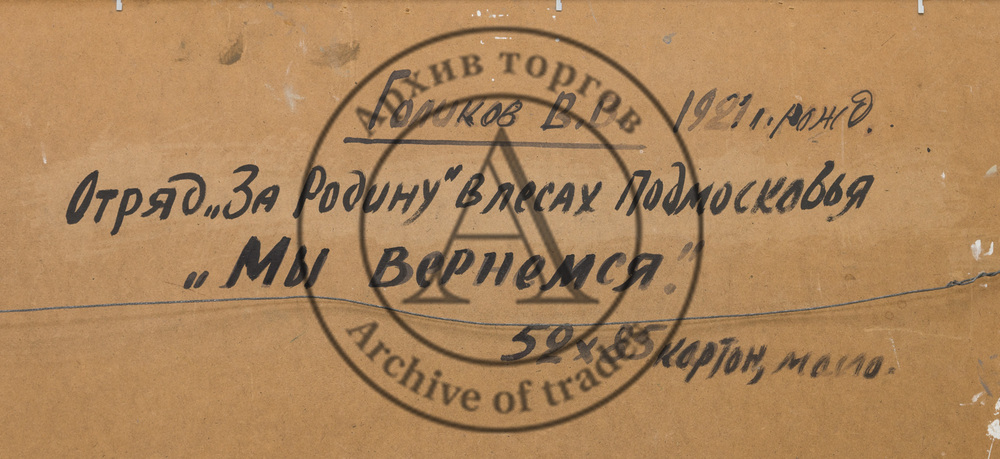 Голиков В.В. 1921 г. рожд.
Отряд „За Родину“ в лесах Подмосковья
„Мы вернемся."
52 х 85 картон, масло.
Архив торгов
A
Archive of trades